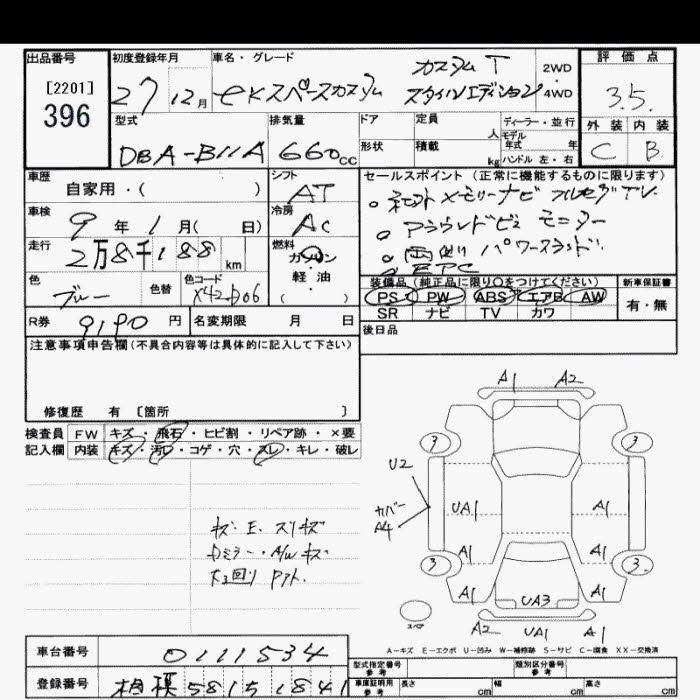 出品番号
[2201]
396
初度登録年月
27 12月
車名・グレード
eKスペースカスタム
カスタムT
スタイルエディション
2WD
・
4WD
評価点
3.5.
外装 内装
C B
型式
DBA-B11A
排気量
660cc
ドア
形状
定員
人
積載
kg
ディーラー・並行
モデル
年式 年
ハンドル 左・右
車歴
自家用・( )
シフト
AT
車検
9年1月( 日)
冷房
AC
走行
2万8千188km
燃料
ガソリン
軽・油
( )
色
ブルー
色替
色コード
X42-D06
セールスポイント (正常に機能するものに限ります)
。ネセット メモリーナビ フルセグTV.
。アラウンドビュー モニター
。両側 パワースライド.
。ETC
装備品 (純正品に限り○をつけてください)
PS PW ABS エアB AW
SR ナビ TV カワ
新車保証書
有・無
R券
9190円
名変期限 月 日
後日品
注意事項申告欄(不具合内容等は具体的に記入して下さい)
修復歴 有 〔箇所 〕
検査員
記入欄
FW キズ・飛石・ヒビ割・リペア跡・×要
内装 キズ・汚レ・コゲ・穴・スレ・キレ・破レ
キズ.E.スリキズ
ミラー・A/Wキズ
下回り
A1 A2
3 3
U2
カバー
A4
UA1 A1
A1 A1
3 3
A1 UA3 A1
A2 UA1 A1
スペア
A-キズ E-エクボ U-凹み W-補修跡 S-サビ C-腐食 XX-交換済
車台番号
0111534
登録番号
相模 581 5 1841
型式指定番号
参考
類別区分番号
参考
車庫証明用
参考
長さ cm 幅 cm 高さ cm